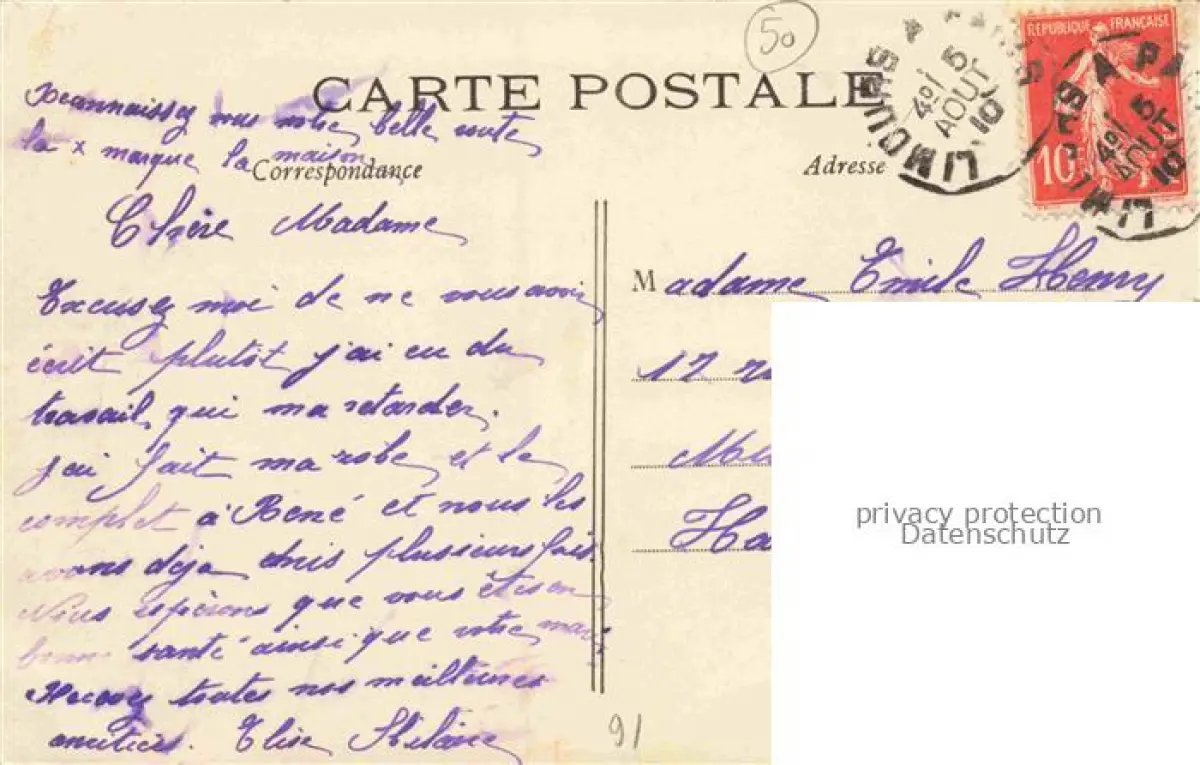 50
RÉPUBLIQUE FRANÇAISE
10
LIMOURS A PARIS
4º/ 5
AOUT
10
CARTE POSTALE
nous votre belle route
la x marque la maison
Correspondance
Adresse
Chère Madame
Excusez moi de ne vous avoir
écrit plutôt j'ai eu du
travail qui ma retarder.
j'ai fait ma robe et le
complet à René et nous les
avons déja mis plusieurs fois.
Nous espérons que vous êtes en
bonne santé ainsi que votre mari
Recevez toutes nos meilleures
amitiés. Elise Hilaire
Madame Emile Henry
12
Ha
privacy protection
Datenschutz
91